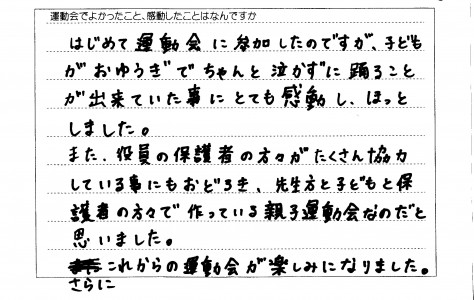 運動会でよかったこと、感動したことはなんですか
はじめて運動会に参加したのですが、子ども
がおゆうぎでちゃんと泣かずに踊ること
が出来ていた事にとても感動し、ほっと
しました。
また、役員の保護者の方々がたくさん協力
している事にもおどろき、先生方と子どもと保
護者の方々で作っている親子運動会なのだと
思いました。
これからの運動会が楽しみになりました。
さらに